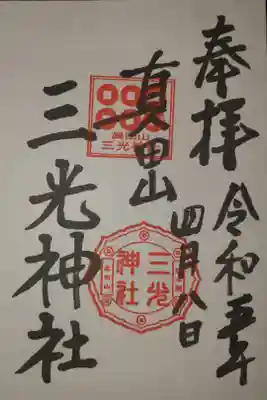 奉拝
令和五年
四月八日
真田山
真田山
三光神社
三光
神社
三光神社